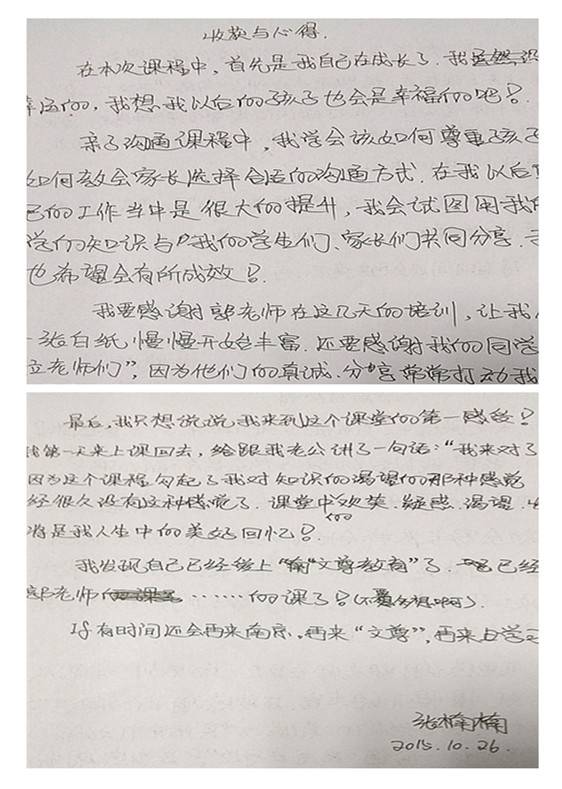 收获与心得.
在本次课程中,首先是我自己在成长了.我虽然没
幸运的,我想我以后的孩子也会是幸福的吧!
亲子沟通课程中,我学会该如何尊重孩子
如何教会家长选择合适的沟通方式.在我以后
的工作当中是很大的提升,我会试图用我
学的知识与我的学生们、家长们共同分享.
也希望会有所成效!
我要感谢郭老师在这几天的培训,让我
一张白纸慢慢开始丰富.还要感谢我的同学
老师们”,因为他们的真诚.分享常常打动我
最后,我只想说说我来到这个课堂的第一感受!
我第一天来上课回去,给跟我老公讲了一句话:“我来对了
因为这个课程勾起了我对知识的渴望的那种感觉
经很久没有这种感觉了.课堂中的欢笑.疑惑.渴望.
将是我人生中的美好回忆!
我发现自己已经爱上“文尊教育”了.已经
郭老师……的课了!
If有时间还会再来南京.再来“文尊”,再来上学
张楠楠
2015.10.26.